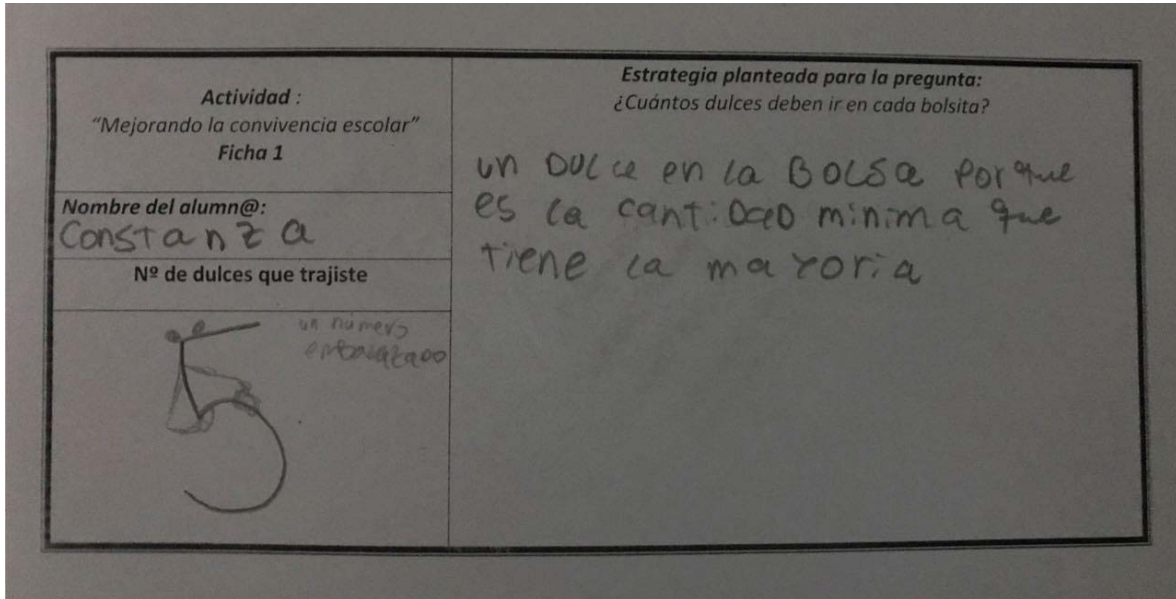 Actividad :
“Mejorando la convivencia escolar”
Ficha 1
Nombre del alumn@:
Constanza
Nº de dulces que trajiste
5
un número
embarazado
Estrategia planteada para la pregunta:
¿Cuántos dulces deben ir en cada bolsita?
un DULce en la BOLSa Porque
es la cantiDaD minima que
tiene la mayoria